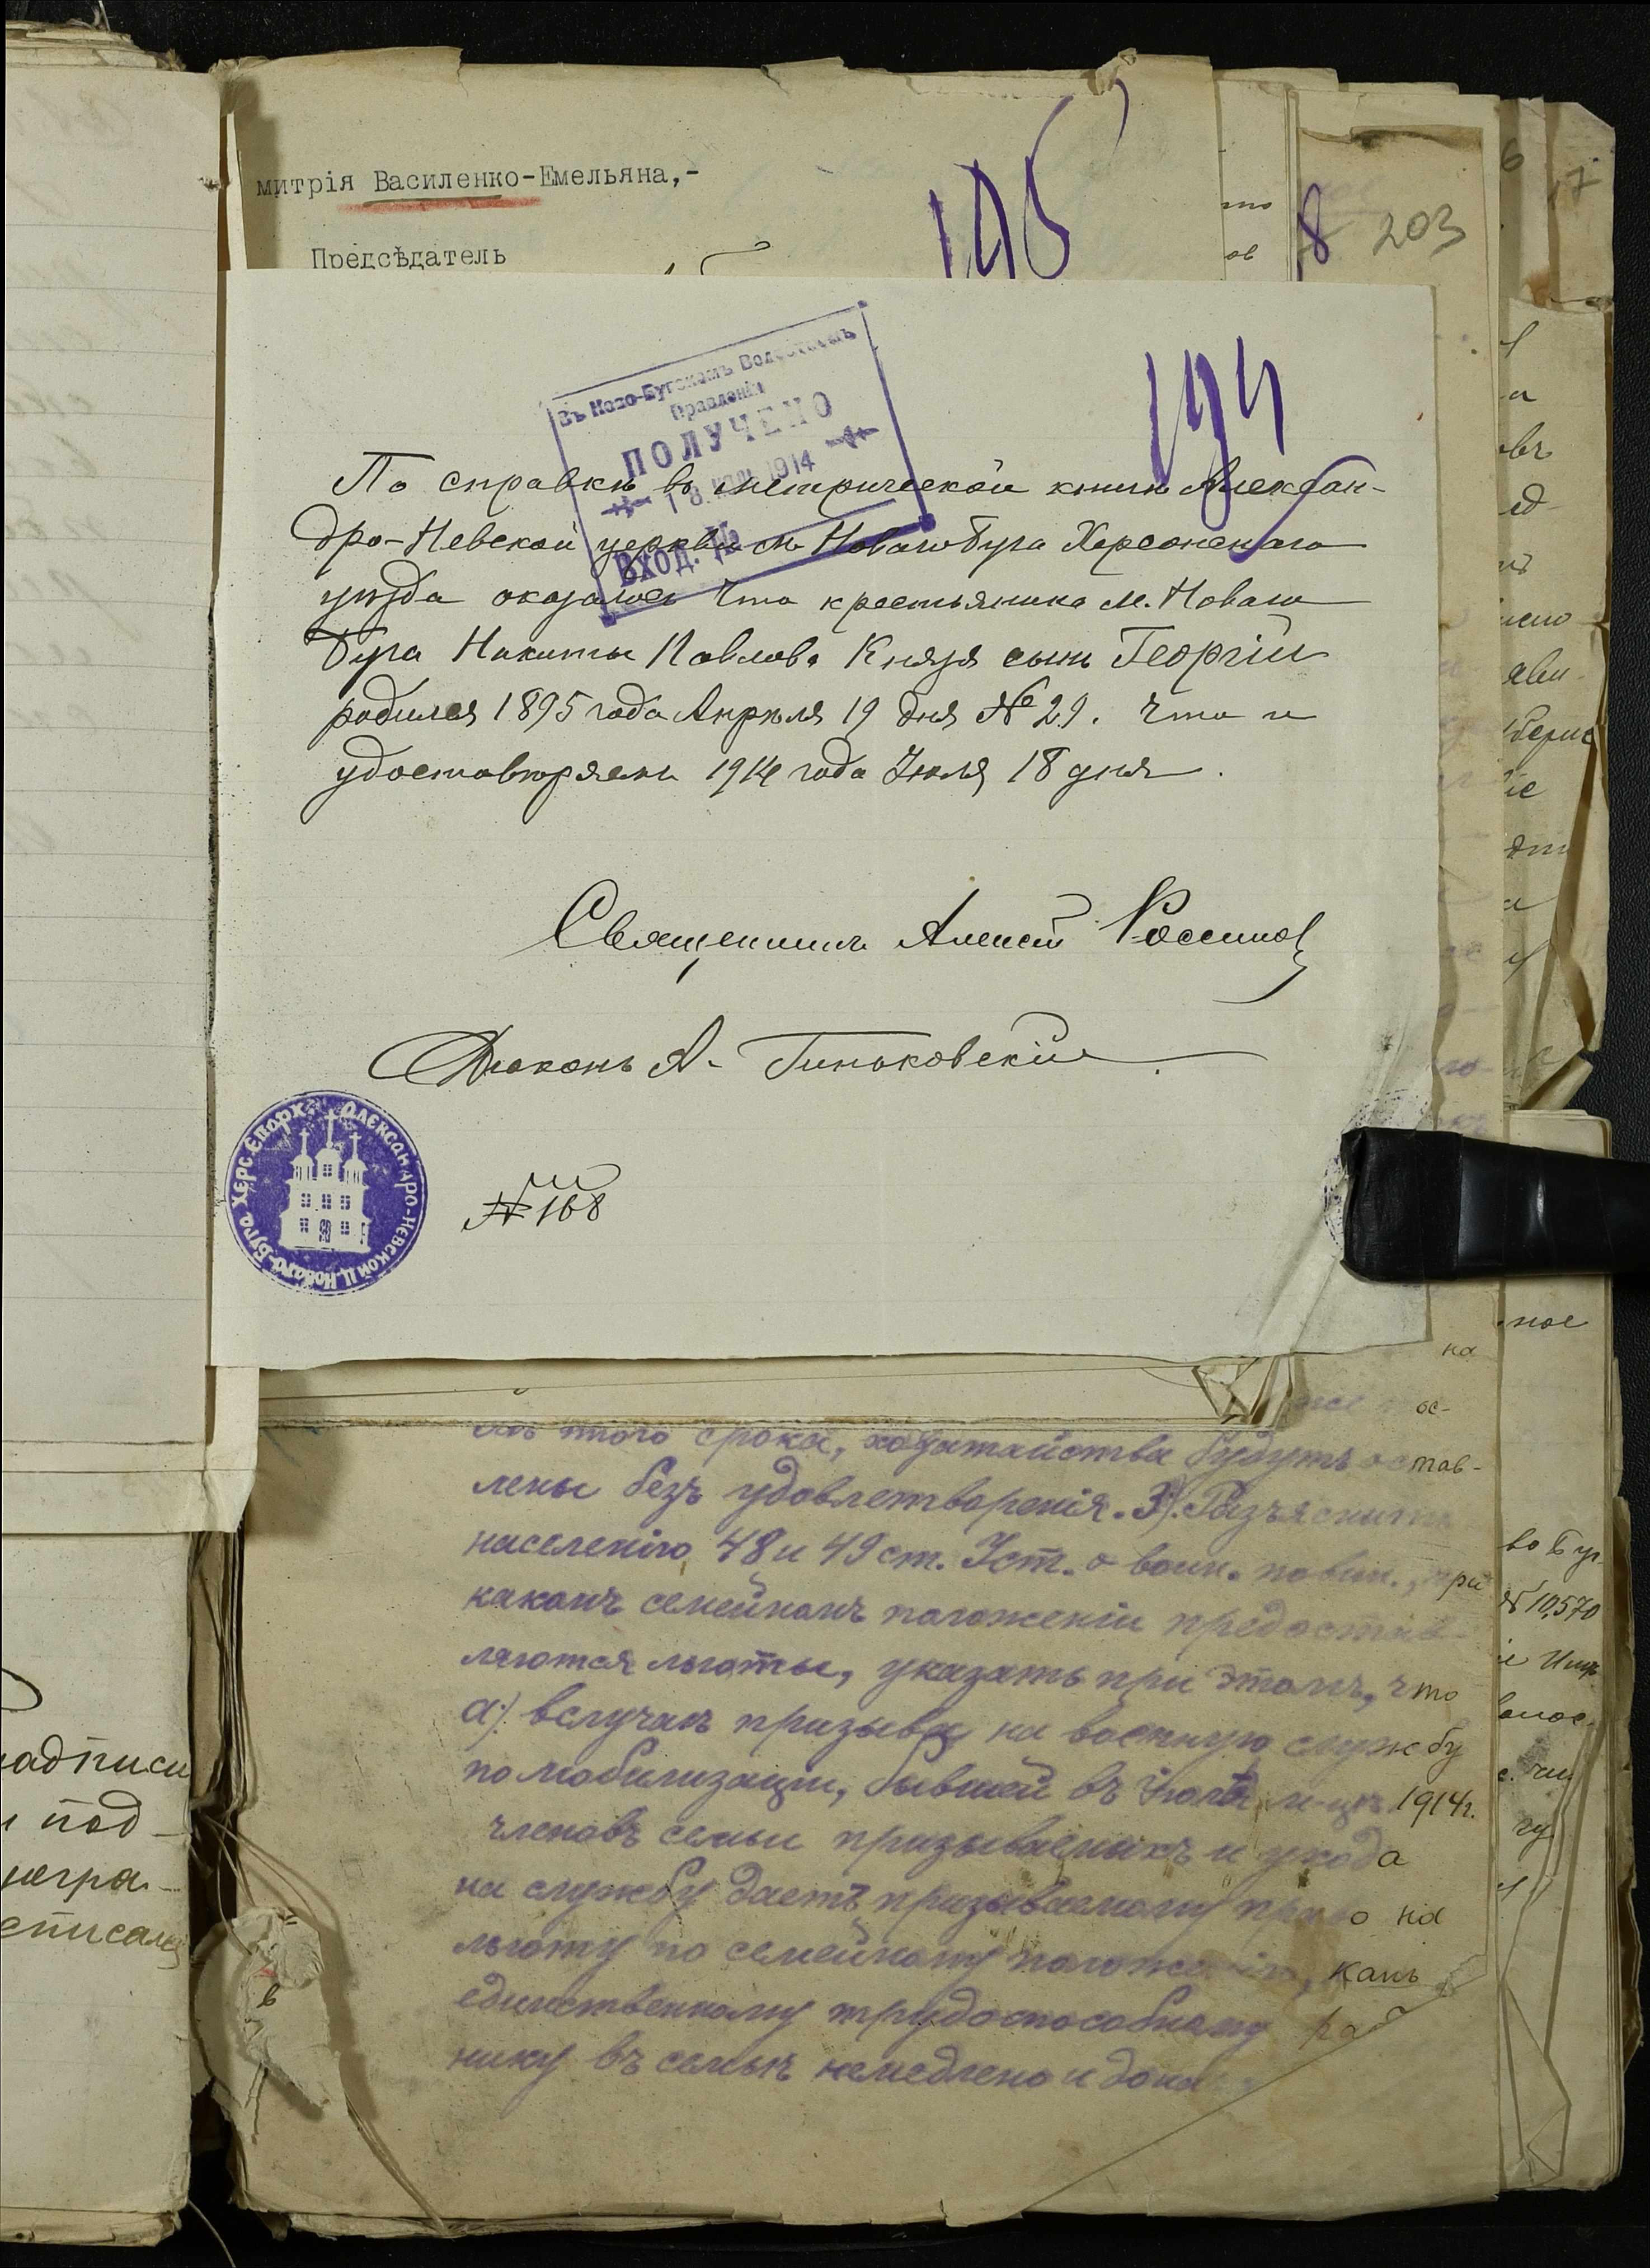 митрія Василенко-Емельяна,-
Предсѣдатель
195
203
8
194
Въ Ново-Бугскомъ Волостномъ
Правленіи
ПОЛУЧЕНО
18 1914
Вход. №
По справкѣ въ метрической книгѣ Алексан-
дро-Невской церкви м. Новаго Буга Херсонскаго
уѣзда оказалось что крестьянина м. Новаго
Буга Никиты Павлова Князя сынъ Георгій
родился 1895 года Апрѣля 19 дня № 29. Что и
удостовѣряемъ 1914 года Іюля 18 дня.
Священникъ Алексѣй
Діаконъ А. Гиньковскій
№ 168
Александро-Невской Ц. Новаго-Буга Херс. Епарх.
этого срока, ходатайства будутъ остав-
лены безъ удовлетворенія. 3). Разъяснить
населенію 48 и 49 ст. Уст. о воин. повин., при
какомъ семейномъ положеніи предостав-
ляются льготы, указать при этомъ, что
а). вслучаѣ призыва на военную службу
по мобилизаціи, бывшей въ Іюлѣ м-цѣ 1914 г.
членовъ семьи призываемыхъ и ухода
на службу даетъ призываемому право на
льготу по семейному положенію, какъ
единственному трудоспособному ра
нику въ семьѣ немедлено и
надписи
и под-
негра-
списали
во Буг
№ 10,570